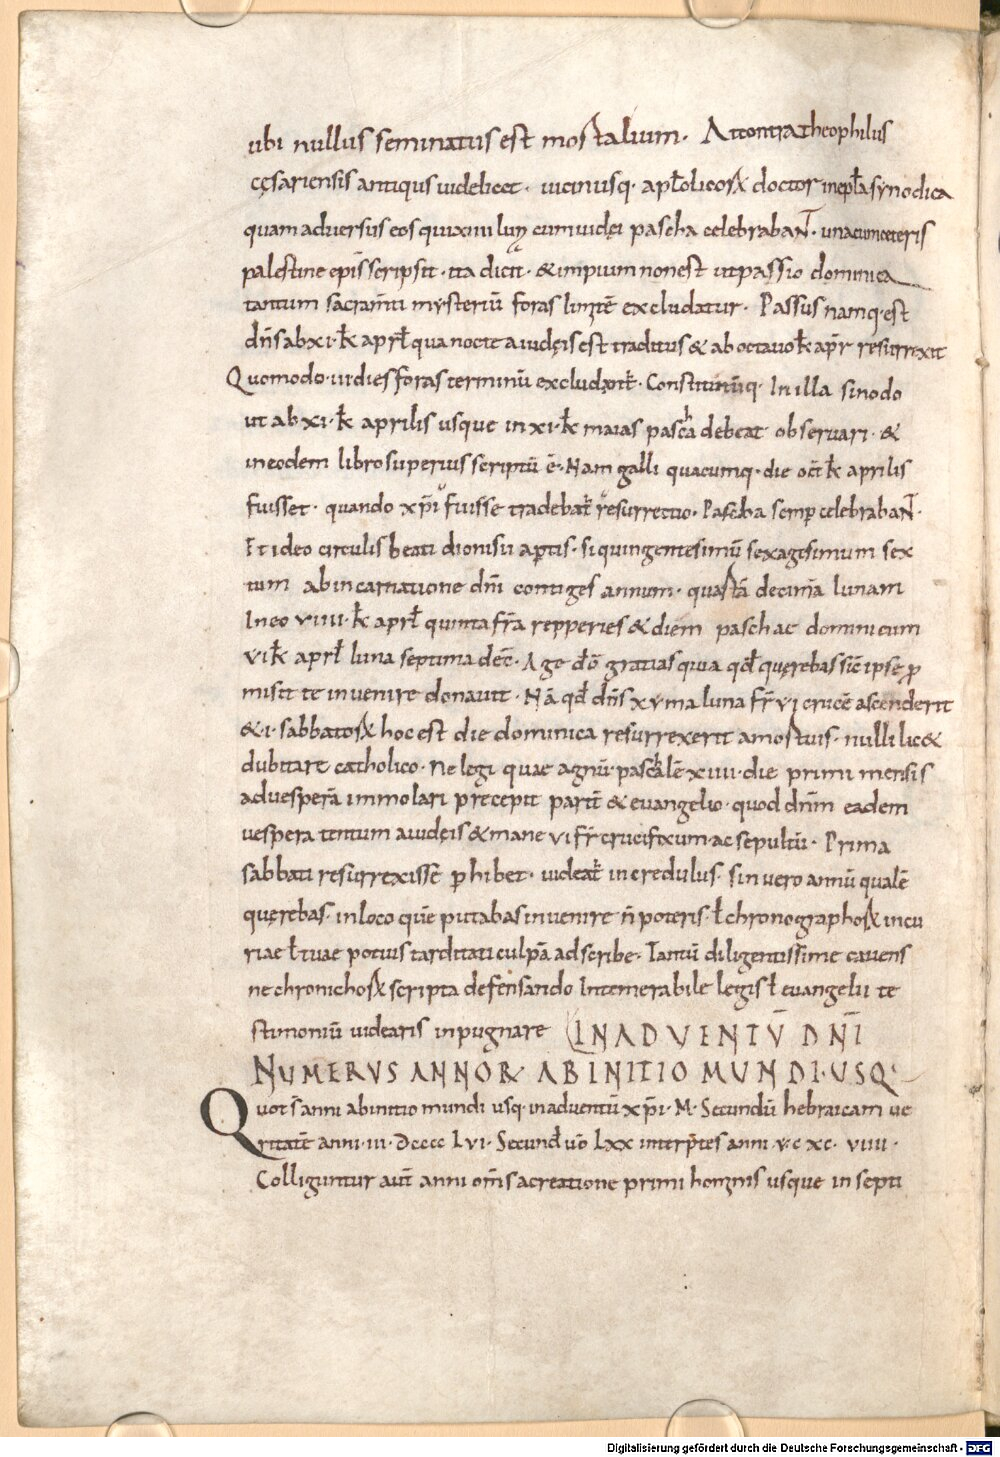 ubi nullus seminatus est mostalium. At contra theophilus
cęsariensis antiqus uidelicet. uicinusq. apłolicoꝝ doctor in epła synodica
quam aduersus eos qui xiiii lunę cum iudęi pascha celebrabant. una cum ceteris
palestine epis̄ scripsit. ita dicit. & impium non est ut passio dominica
tantum sacram̄ti mysteriū foras limitē excludatur. Passus namq. est
dn̄s ab xi. k̄ april̄ qua nocte a iudęis est traditus & ab octauo k̄ apr̄ resurrexit
Quomodo. iii dies foras terminū excludant̄. Constitutūq. In illa sinodo
ut ab xi. k̄ aprilis usque in xi. k̄ maias pascha debeat obseruari. &
in eodem libro superius scriptū ē. Nam galli quacumq. die oct̄ k̄ aprilis
fuisset. quando xp̄i fuisse tradebat̄ resurrectio. Pascha semp̄ celebrabant.
Et ideo circulis beati dionisii apertis. si quingentesimū sexagesimum sex
tum ab incarnatione dn̄i contiges annum. quartā decimā lunam
In eo viiii. k̄ april̄ quinta fr̄a repperies & diem paschae dominicum
vi k̄ april̄ luna septima dec̄. Age dō gratias quia qd̄ querebas sic̄ ipse ꝓ
misit te inuenire donauit. Nā qd̄ dn̄s xv ma luna fr̄ vi crucē ascenderit
& i. sabbatoꝝ hoc est die dominica resurrexerit a mortuis. nulli lic&
dubitare catholico. ne legi quae agnū. paschalē xiiii. die primi mensis
ad uesperā immolari p̄recepit parit̄ & euangelio. quod dn̄m eadem
uespera tentum a iudęis & mane vi fr̄ crucifixum. ac sepultū. Prima
sabbati resurrexissē ꝑhibet. uideat̄ incredulus. sin uero annū qualē
quęrebas. in loco quē putabas inuenire n̄ poteris. ł chronographoꝝ incu
riae ł tuae potius tarditati culpā adscribe. Tantū diligentissime cauens
ne chronichoꝝ scripta defensando Intemerabile legis ł euangelii te
stimoniū uidearis inpugnare IN ADVENTV̄ DN̄I
NUMERVS ANNOR AB INITIO MUNDI. USQ
Quot s̄ anni ab initio mundi usq. in aduentū xp̄i. M. Secundū hebraicam ue
ritatē anni. iii. Dcccc Lvi. Secund uō Lxx interp̄tes anni. v. c xc. viiii.
Colliguntur aut̄ anni om̄s a creatione primi hominis usque in septi
Digitalisierung gefördert durch die Deutsche Forschungsgemeinschaft - DFG